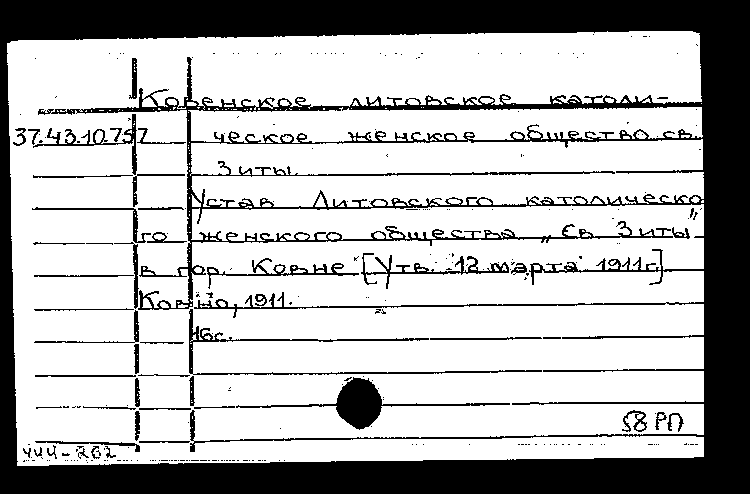 Ковенское литовское католи-
37.43.10.757 ческое женское общество св.
Зиты.
Устав Литовского католическо
го женского общества „Св Зиты"
в гор. Ковне [Утв. 12 марта 1911г.]
Ковно, 1911.
16с.
58 РП
444-262